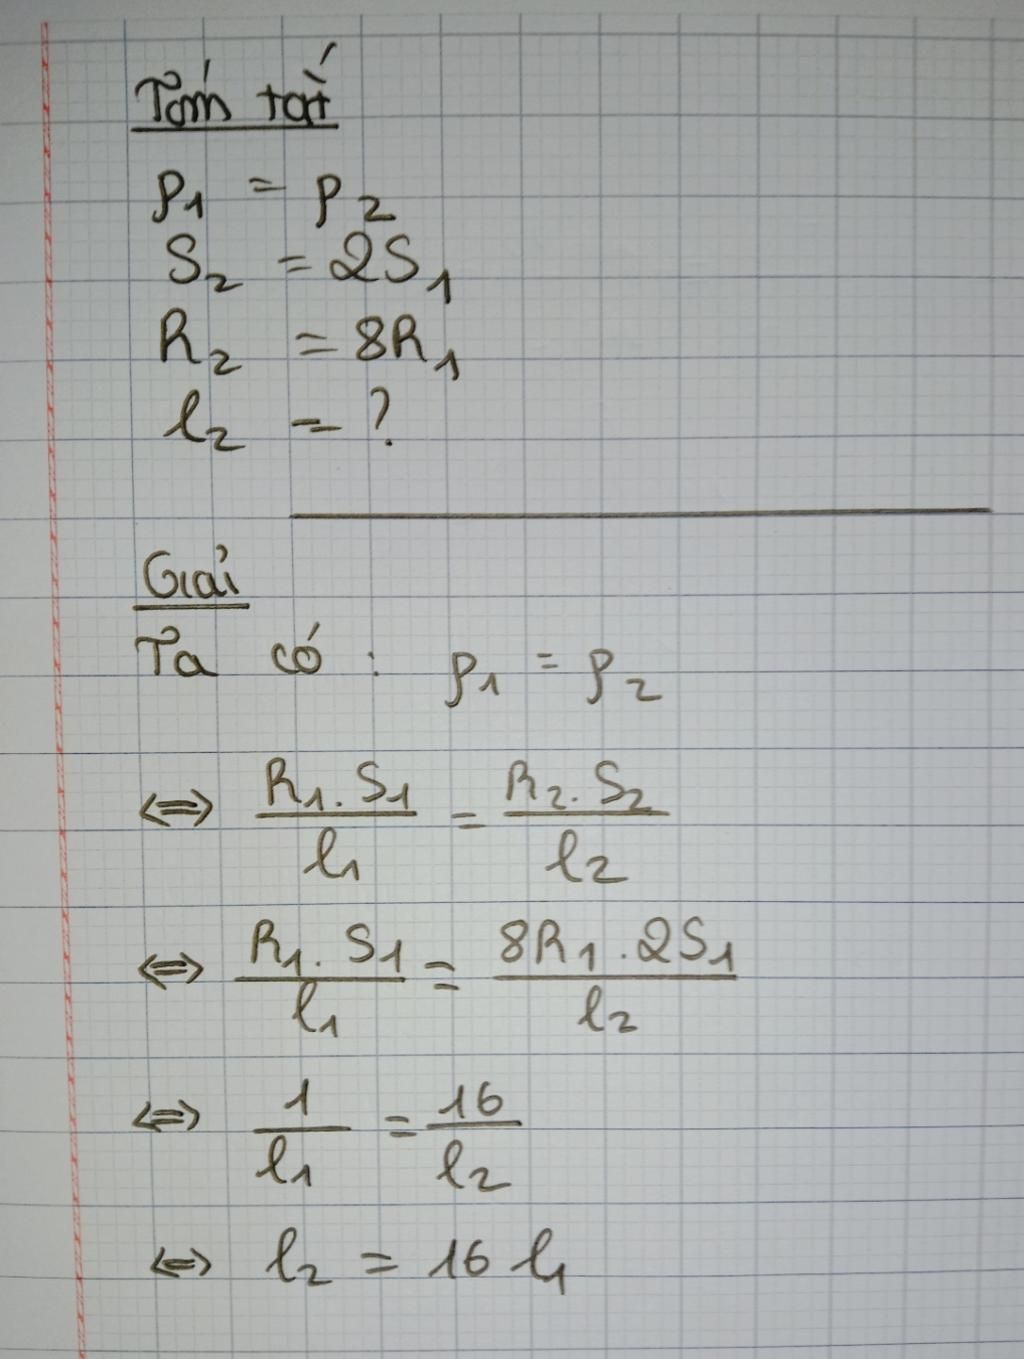 Tóm tắt
ρ₁ = ρ₂
S₂ = 2S₁
R₂ = 8R₁
l₂ = ?
Giải
Ta có : ρ₁ = ρ₂
⇔ R₁.S₁/l₁ = R₂.S₂/l₂
⇔ R₁.S₁/l₁ = 8R₁.2S₁/l₂
⇔ 1/l₁ = 16/l₂
⇔ l₂ = 16 l₁